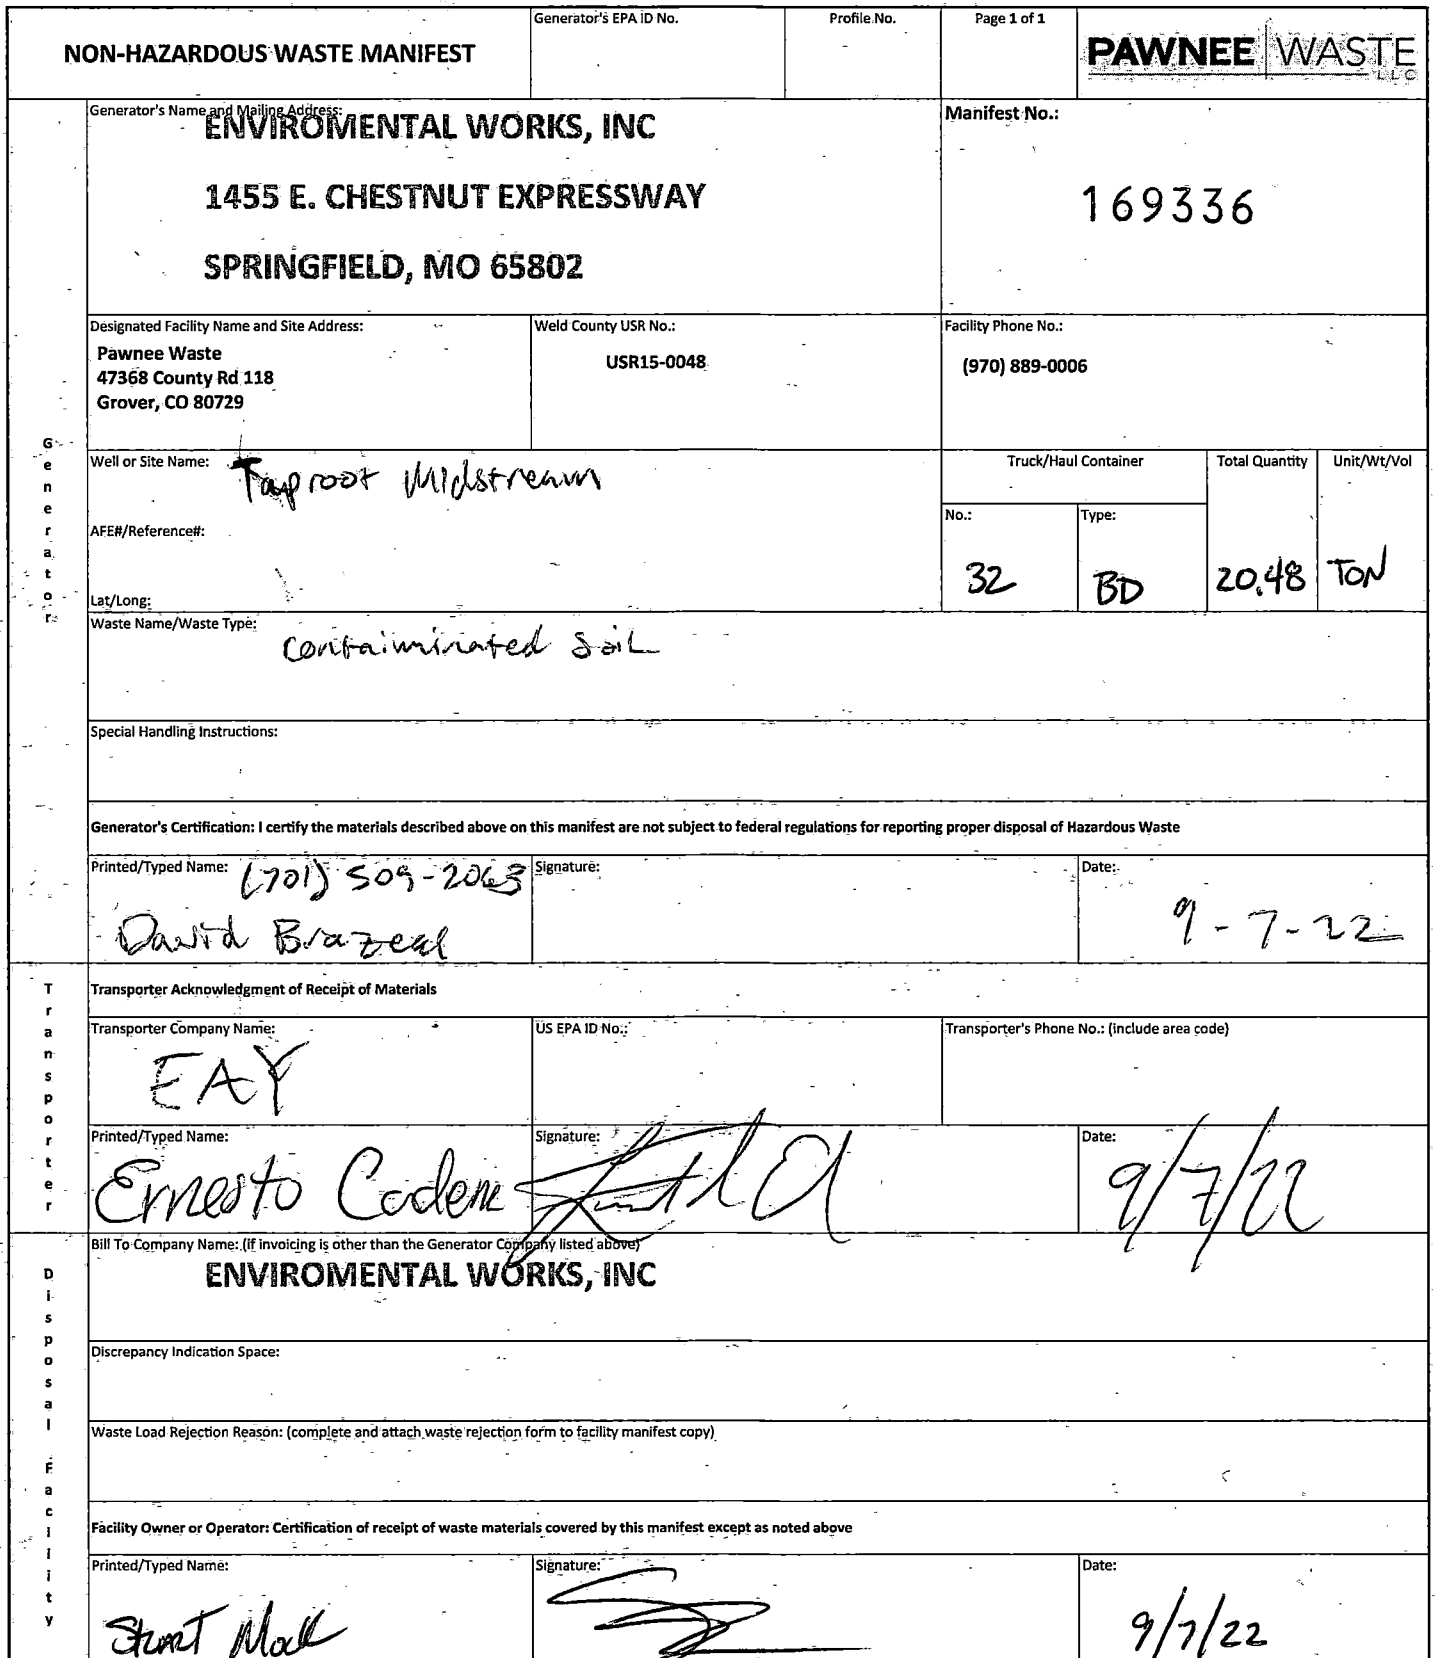 NON-HAZARDOUS WASTE MANIFEST
Generator's EPA ID No.
Profile No.
Page 1 of 1
PAWNEE WASTE
LLC
Generator's Name and Mailing Address:
ENVIROMENTAL WORKS, INC
1455 E. CHESTNUT EXPRESSWAY
SPRINGFIELD, MO 65802
Manifest No.:
169336
Designated Facility Name and Site Address:
Pawnee Waste
47368 County Rd 118
Grover, CO 80729
Weld County USR No.:
USR15-0048
Facility Phone No.:
(970) 889-0006
Generator
Well or Site Name: Taproot Midstream
AFE#/Reference#:
Lat/Long:
Truck/Haul Container
Total Quantity
Unit/Wt/Vol
No.:
Type:
32
BD
20.48
TON
Waste Name/Waste Type:
Contaiminated Soil
Special Handling Instructions:
Generator's Certification: I certify the materials described above on this manifest are not subject to federal regulations for reporting proper disposal of Hazardous Waste
Printed/Typed Name: (701) 509-2063
David Brazeal
Signature:
Date:
9-7-22
Transporter
Transporter Acknowledgment of Receipt of Materials
Transporter Company Name:
EAY
US EPA ID No.:
Transporter's Phone No.: (include area code)
Printed/Typed Name:
Ernesto Cadena
Signature:
Date:
9/7/22
Disposal Facility
Bill To Company Name: (if invoicing is other than the Generator Company listed above)
ENVIROMENTAL WORKS, INC
Discrepancy Indication Space:
Waste Load Rejection Reason: (complete and attach waste rejection form to facility manifest copy)
Facility Owner or Operator: Certification of receipt of waste materials covered by this manifest except as noted above
Printed/Typed Name:
Stuart
Signature:
Date:
9/7/22